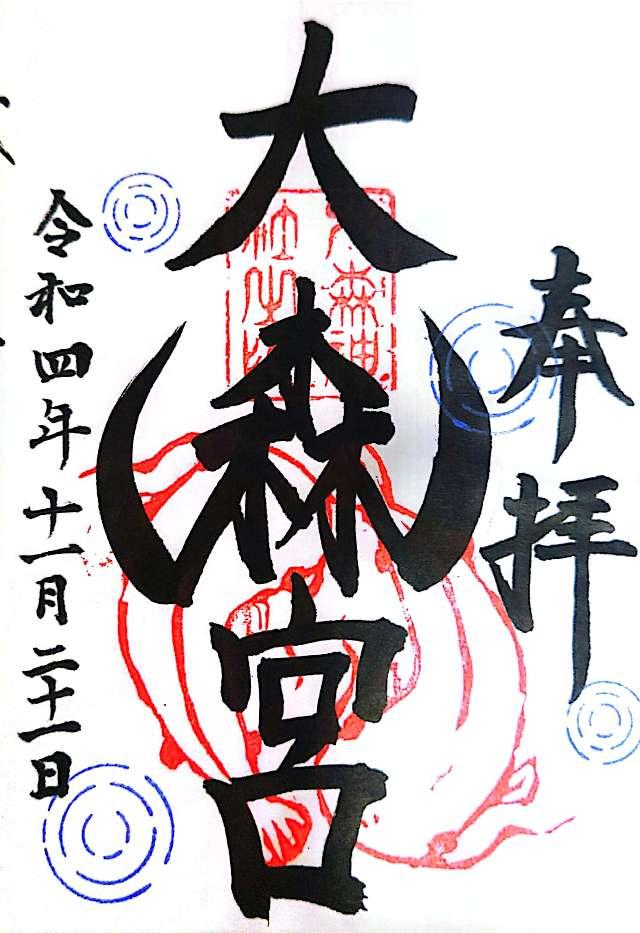 奉拝
大森宮
令和四年十一月二十一日